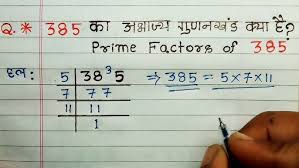 Q.* 385 का अभाज्य गुणनखंड क्या है?
Prime Factors of 385
हल: 5 | 38³5 ⇒ 385 = 5×7×11
7 | 77
11 | 11
1